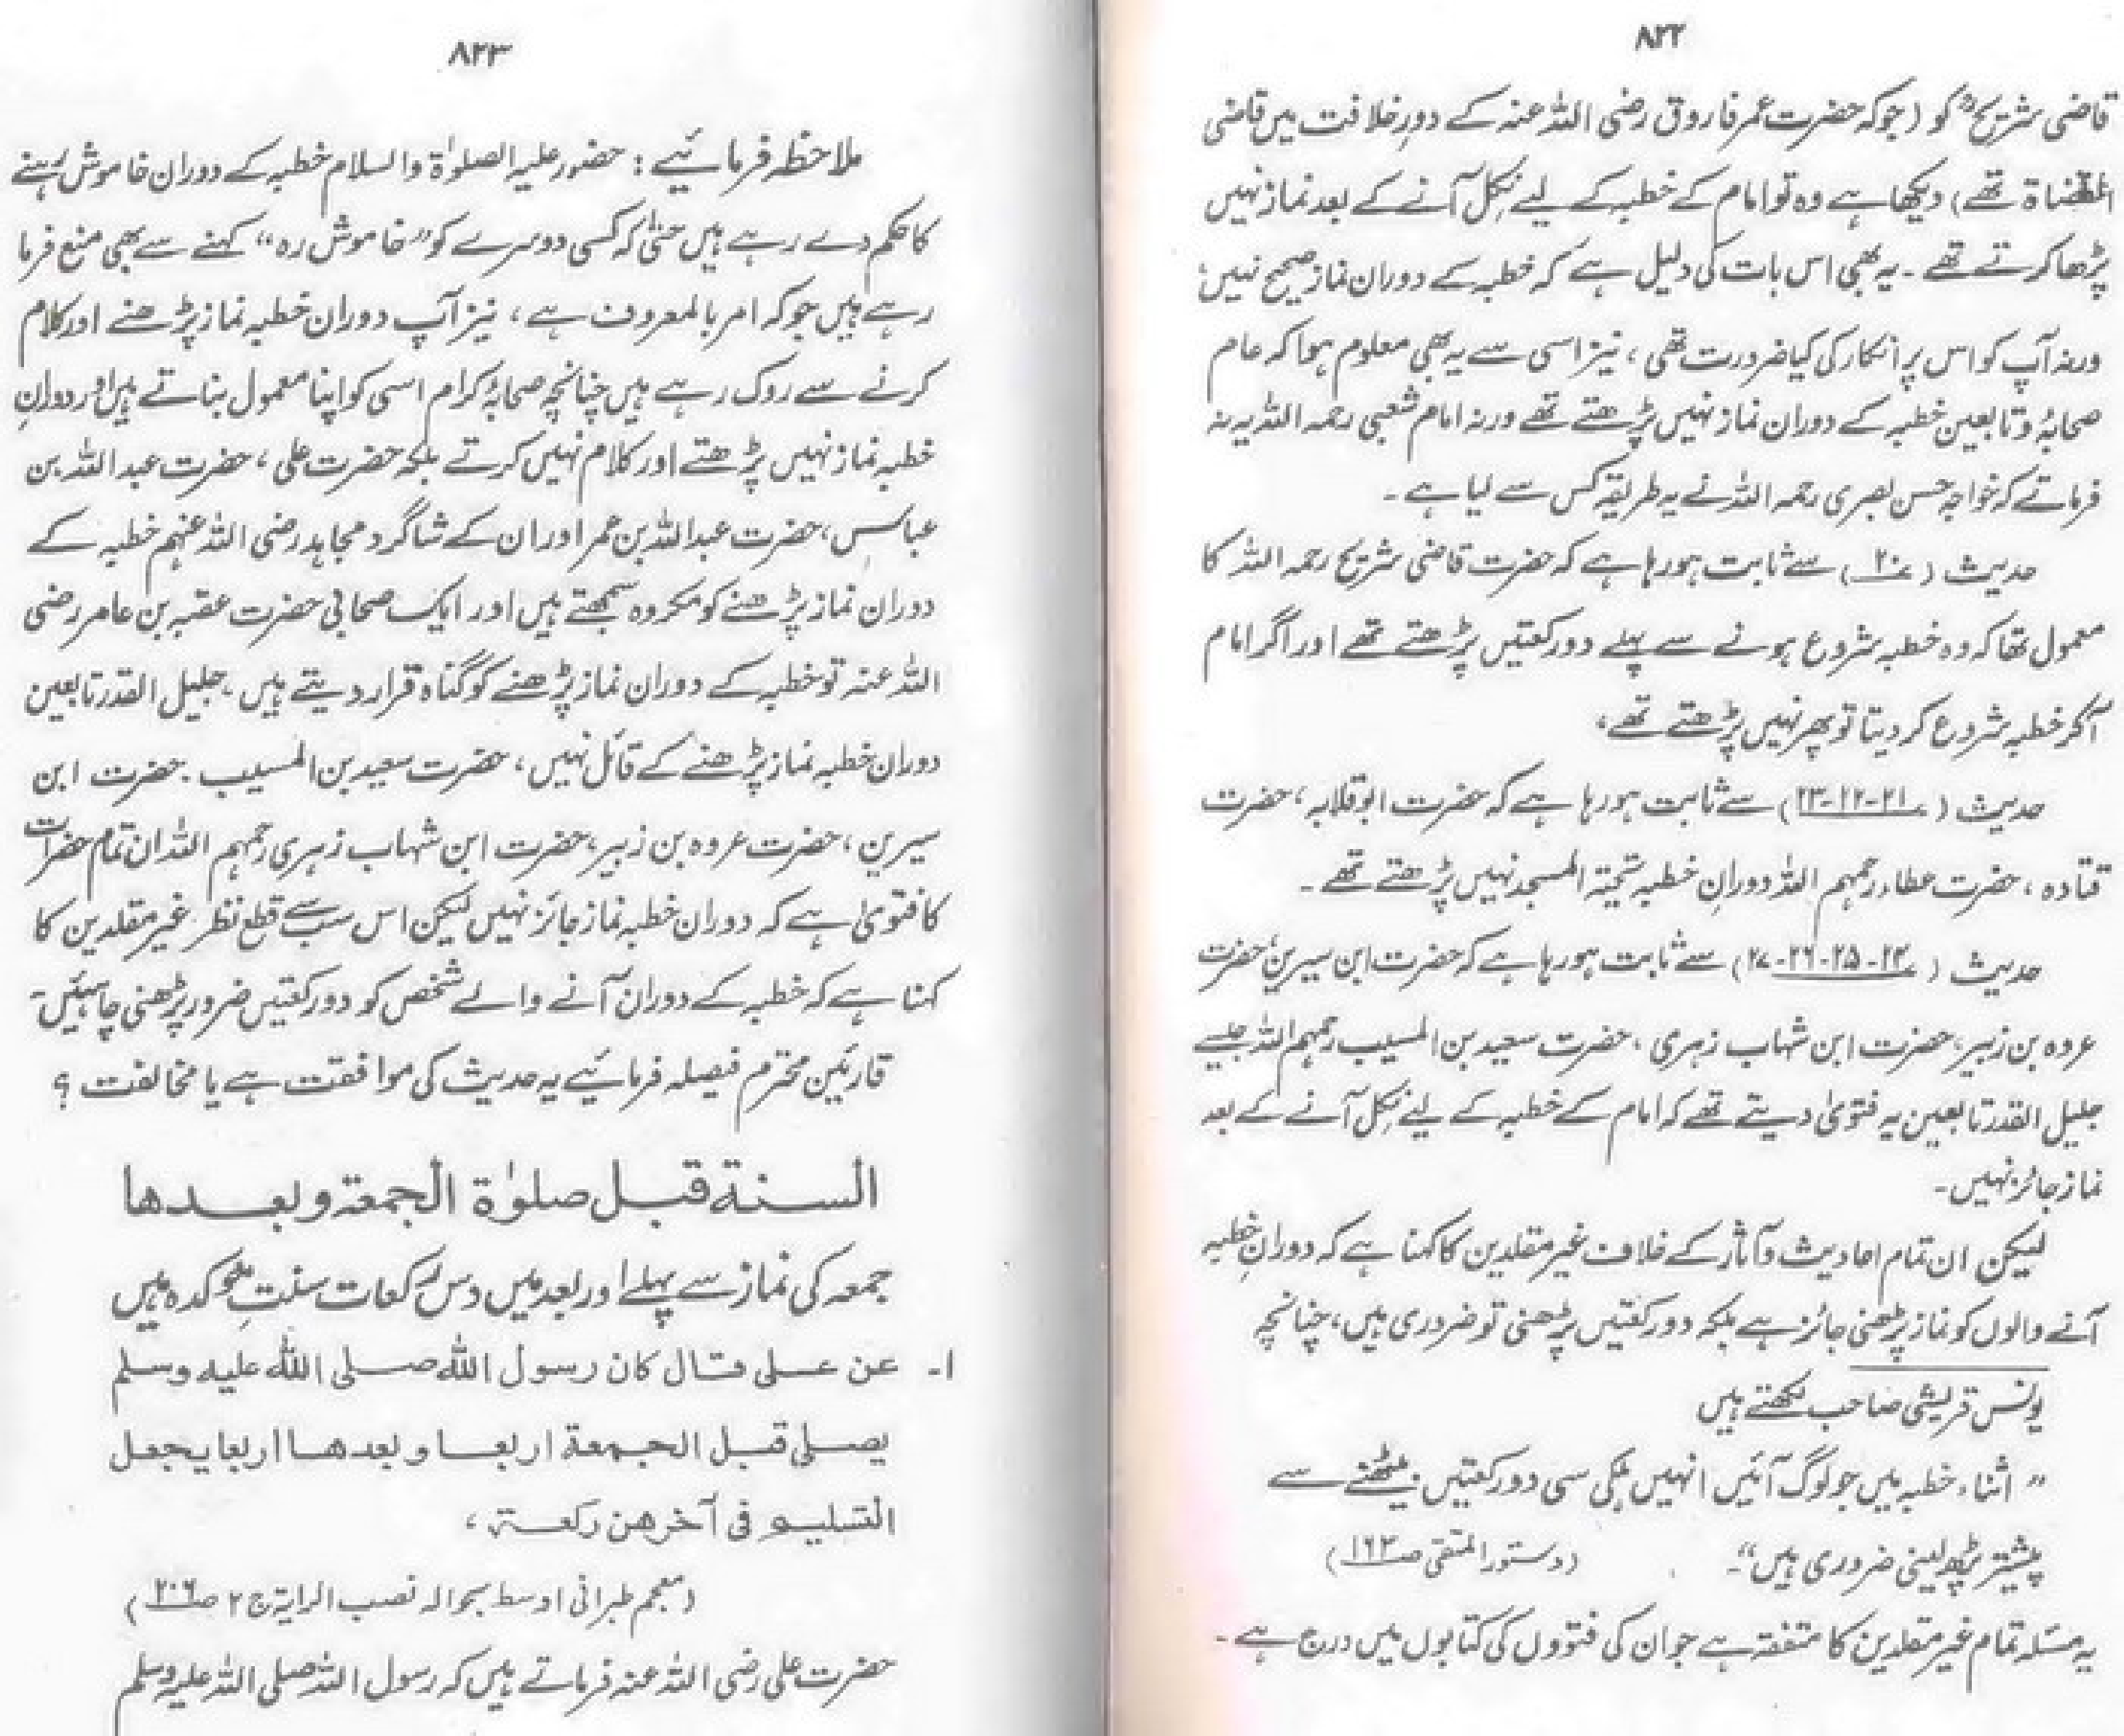 ۸۲۲
قاضی شریحؒ کو (جوکہ حضرت عمر فاروق رضی اللہ عنہ کے دورِ خلافت میں قاضی
القضاۃ تھے) دیکھا ہے وہ تو امام کے خطبہ کے لیے نکل آنے کے بعد نماز نہیں
پڑھا کرتے تھے ۔ یہ بھی اس بات کی دلیل ہے کہ خطبہ کے دوران نماز صحیح نہیں؛
ورنہ آپ کو اس پر انکار کی کیا ضرورت تھی ، نیز اسی سے یہ بھی معلوم ہوا کہ عام
صحابہؓ و تابعین خطبہ کے دوران نماز نہیں پڑھتے تھے ورنہ امام شعبی رحمہ اللہ یہ نہ
فرماتے کہ خواجہ حسن بصری رحمہ اللہ نے یہ طریقہ کس سے لیا ہے ۔
حدیث (۲۰) سے ثابت ہو رہا ہے کہ حضرت قاضی شریح رحمہ اللہ کا
معمول تھا کہ وہ خطبہ شروع ہونے سے پہلے دو رکعتیں پڑھتے تھے اور اگر امام
آکر خطبہ شروع کر دیتا تو پھر نہیں پڑھتے تھے ،
حدیث (۲۱-۲۲-۲۳) سے ثابت ہو رہا ہے کہ حضرت ابوقلابہ ، حضرت
قتادہ ، حضرت عطاء رحمہم اللہ دورانِ خطبہ تحیۃ المسجد نہیں پڑھتے تھے ۔
حدیث (۲۴-۲۵-۲۶-۲۷) سے ثابت ہو رہا ہے کہ حضرت ابن سیرین ؒ حضرت
عروہ بن زبیر ، حضرت ابن شہاب زہری ، حضرت سعید بن المسیب رحمہم اللہ جیسے
جلیل القدر تابعین یہ فتویٰ دیتے تھے کہ امام کے خطبہ کے لیے نکل آنے کے بعد
نماز جائز نہیں ۔
لیکن ان تمام احادیث و آثار کے خلاف غیر مقلدین کا کہنا ہے کہ دورانِ خطبہ
آنے والوں کو نماز پڑھنی جائز ہے بلکہ دو رکعتیں پڑھنی تو ضروری ہیں ، چنانچہ
یونس قریشی صاحب لکھتے ہیں
” اثناء خطبہ میں جو لوگ آئیں انہیں ہلکی سی دو رکعتیں بیٹھنے سے
پیشتر پڑھ لینی ضروری ہیں“ ۔ (دستور المتقی صـ ۱۶۳)
یہ مسئلہ تمام غیر مقلدین کا متفقہ ہے جو ان کی فتووں کی کتابوں میں درج ہے ۔
۸۲۳
ملاحظہ فرمائیے : حضور علیہ الصلوٰۃ والسلام خطبہ کے دوران خاموش رہنے
کا حکم دے رہے ہیں حتیٰ کہ کسی دوسرے کو ”خاموش رہ“ کہنے سے بھی منع فرما
رہے ہیں جو کہ امر بالمعروف ہے ، نیز آپ دوران خطبہ نماز پڑھنے اور کلام
کرنے سے روک رہے ہیں چنانچہ صحابۂ کرام اسی کو اپنا معمول بناتے ہیں اور دورانِ
خطبہ نماز نہیں پڑھتے اور کلام نہیں کرتے بلکہ حضرت علی ، حضرت عبداللہ بن
عباس ، حضرت عبداللہ بن عمر اور ان کے شاگرد مجاہد رضی اللہ عنہم خطبہ کے
دوران نماز پڑھنے کو مکروہ سمجھتے ہیں اور ایک صحابی حضرت عقبہ بن عامر رضی
اللہ عنہ تو خطبہ کے دوران نماز پڑھنے کو گناہ قرار دیتے ہیں ، جلیل القدر تابعین
دوران خطبہ نماز پڑھنے کے قائل نہیں ، حضرت سعید بن المسیب ۔ حضرت ابن
سیرین ، حضرت عروہ بن زبیر ، حضرت ابن شہاب زہری رحمہم اللہ ان تمام حضرات
کا فتویٰ ہے کہ دوران خطبہ نماز جائز نہیں لیکن اس سب سے قطع نظر غیر مقلدین کا
کہنا ہے کہ خطبہ کے دوران آنے والے شخص کو دو رکعتیں ضرور پڑھنی چاہئیں ۔
قارئین محترم فیصلہ فرمائیے یہ حدیث کی موافقت ہے یا مخالفت ؟
السنة قبل صلوٰة الجمعة وبعدها
جمعہ کی نماز سے پہلے اور بعد میں دس رکعات سنتِ مؤکدہ ہیں
۱۔ عن علی قال کان رسول الله صلی الله علیه وسلم
یصلی قبل الجمعة اربعا وبعدها اربعا یجعل
التسلیم فی آخرهن رکعة ،
(معجم طبرانی اوسط بحوالہ نصب الرایۃ ج ۲ صـ ۲۰۶)
حضرت علی رضی اللہ عنہ فرماتے ہیں کہ رسول اللہ صلی اللہ علیہ وسلم